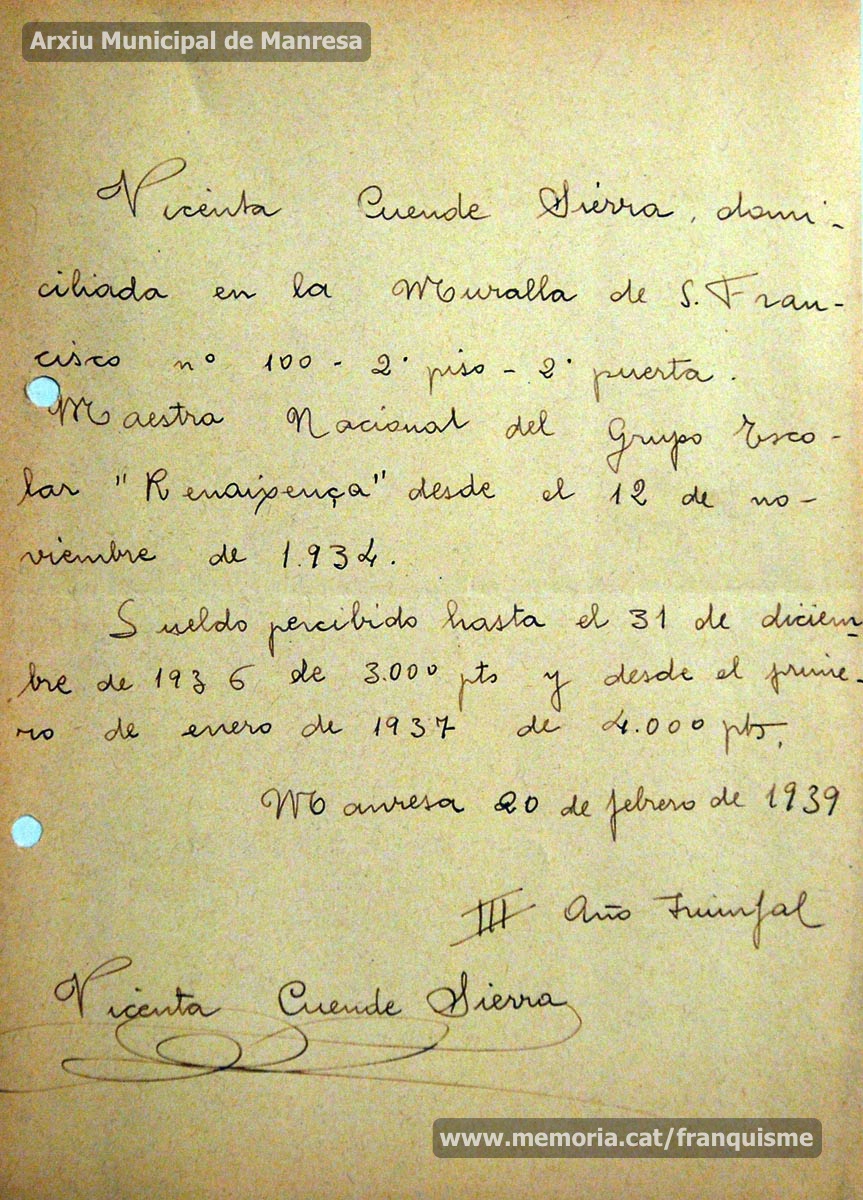 Arxiu Municipal de Manresa
Vicenta Cuende Sierra, domi-
ciliada en la Muralla de S. Fran-
cisco nº 100 - 2º piso - 2º puerta.
Maestra Nacional del Grupo Esco-
lar "Renaixença" desde el 12 de no-
viembre de 1.934.
Sueldo percibido hasta el 31 de diciem-
bre de 1936 de 3.000 pts y desde el prime-
ro de enero de 1937 de 4.000 pts.
Manresa 20 de febrero de 1939
III Año Triunfal
Vicenta Cuende Sierra
www.memoria.cat/franquisme